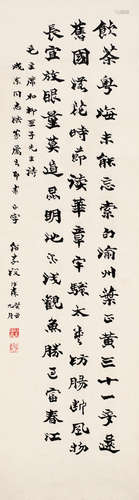 飲茶粵海未能忘索句渝州葉正黃三十一年還
舊國落花時節讀華章牢騷太盛防腸斷風物
長宜放眼量莫道昆明池水淺觀魚勝過富春江
毛主席和柳亞子先生詩
同志